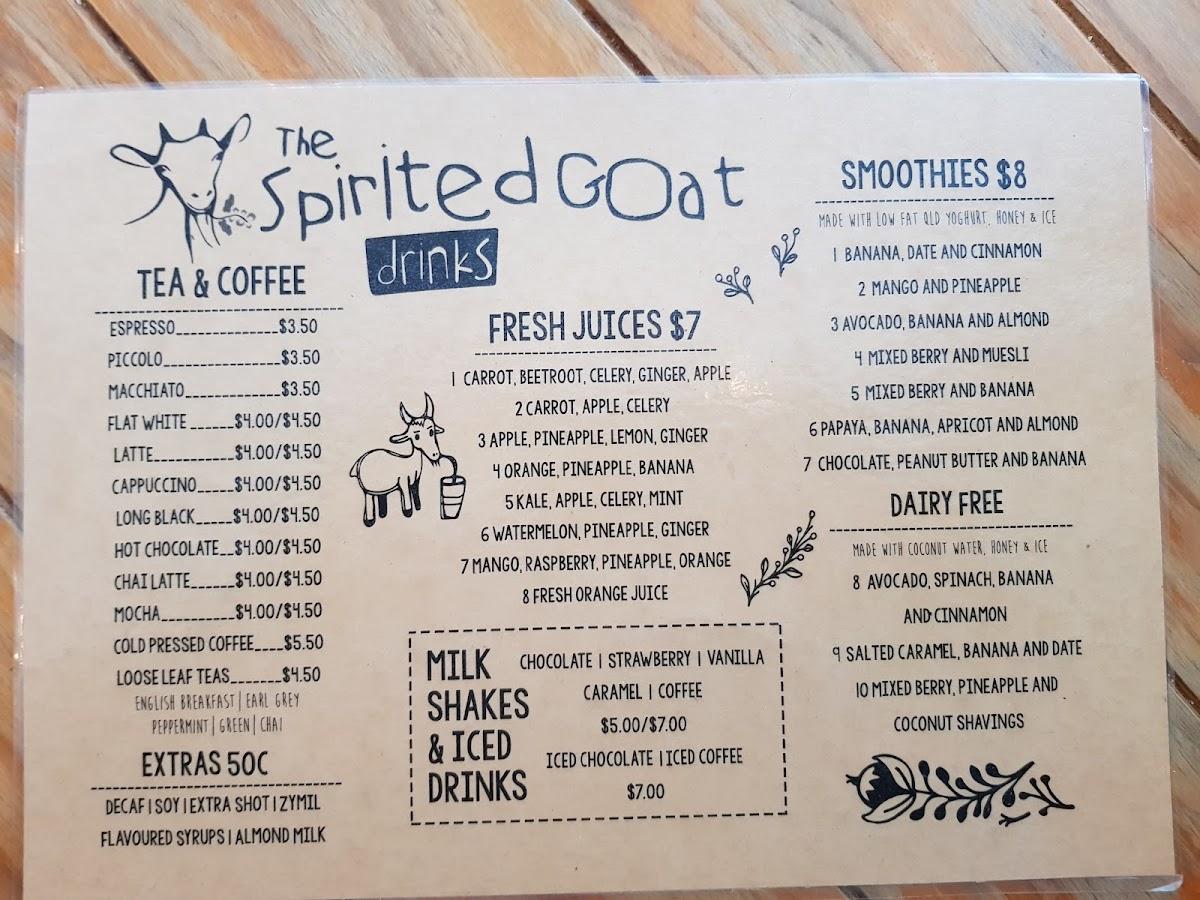 The
Spirited Goat
drinks
TEA & COFFEE
ESPRESSO______________$3.50
PICCOLO________________$3.50
MACCHIATO_____________$3.50
FLAT WHITE ______$4.00/$4.50
LATTE___________$4.00/$4.50
CAPPUCCINO_____$4.00/$4.50
LONG BLACK_____$4.00/$4.50
HOT CHOCOLATE__$4.00/$4.50
CHAI LATTE______$4.00/$4.50
MOCHA__________$4.00/$4.50
COLD PRESSED COFFEE____$5.50
LOOSE LEAF TEAS_______$4.50
ENGLISH BREAKFAST | EARL GREY
PEPPERMINT | GREEN | CHAI
EXTRAS 50C
DECAF | SOY | EXTRA SHOT | ZYMIL
FLAVOURED SYRUPS | ALMOND MILK
FRESH JUICES $7
1 CARROT, BEETROOT, CELERY, GINGER, APPLE
2 CARROT, APPLE, CELERY
3 APPLE, PINEAPPLE, LEMON, GINGER
4 ORANGE, PINEAPPLE, BANANA
5 KALE, APPLE, CELERY, MINT
6 WATERMELON, PINEAPPLE, GINGER
7 MANGO, RASPBERRY, PINEAPPLE, ORANGE
8 FRESH ORANGE JUICE
MILK
SHAKES
& ICED
DRINKS
CHOCOLATE | STRAWBERRY | VANILLA
CARAMEL | COFFEE
$5.00/$7.00
ICED CHOCOLATE | ICED COFFEE
$7.00
SMOOTHIES $8
MADE WITH LOW FAT QLD YOGHURT, HONEY & ICE
1 BANANA, DATE AND CINNAMON
2 MANGO AND PINEAPPLE
3 AVOCADO, BANANA AND ALMOND
4 MIXED BERRY AND MUESLI
5 MIXED BERRY AND BANANA
6 PAPAYA, BANANA, APRICOT AND ALMOND
7 CHOCOLATE, PEANUT BUTTER AND BANANA
DAIRY FREE
MADE WITH COCONUT WATER, HONEY & ICE
8 AVOCADO, SPINACH, BANANA
AND CINNAMON
9 SALTED CARAMEL, BANANA AND DATE
10 MIXED BERRY, PINEAPPLE AND
COCONUT SHAVINGS